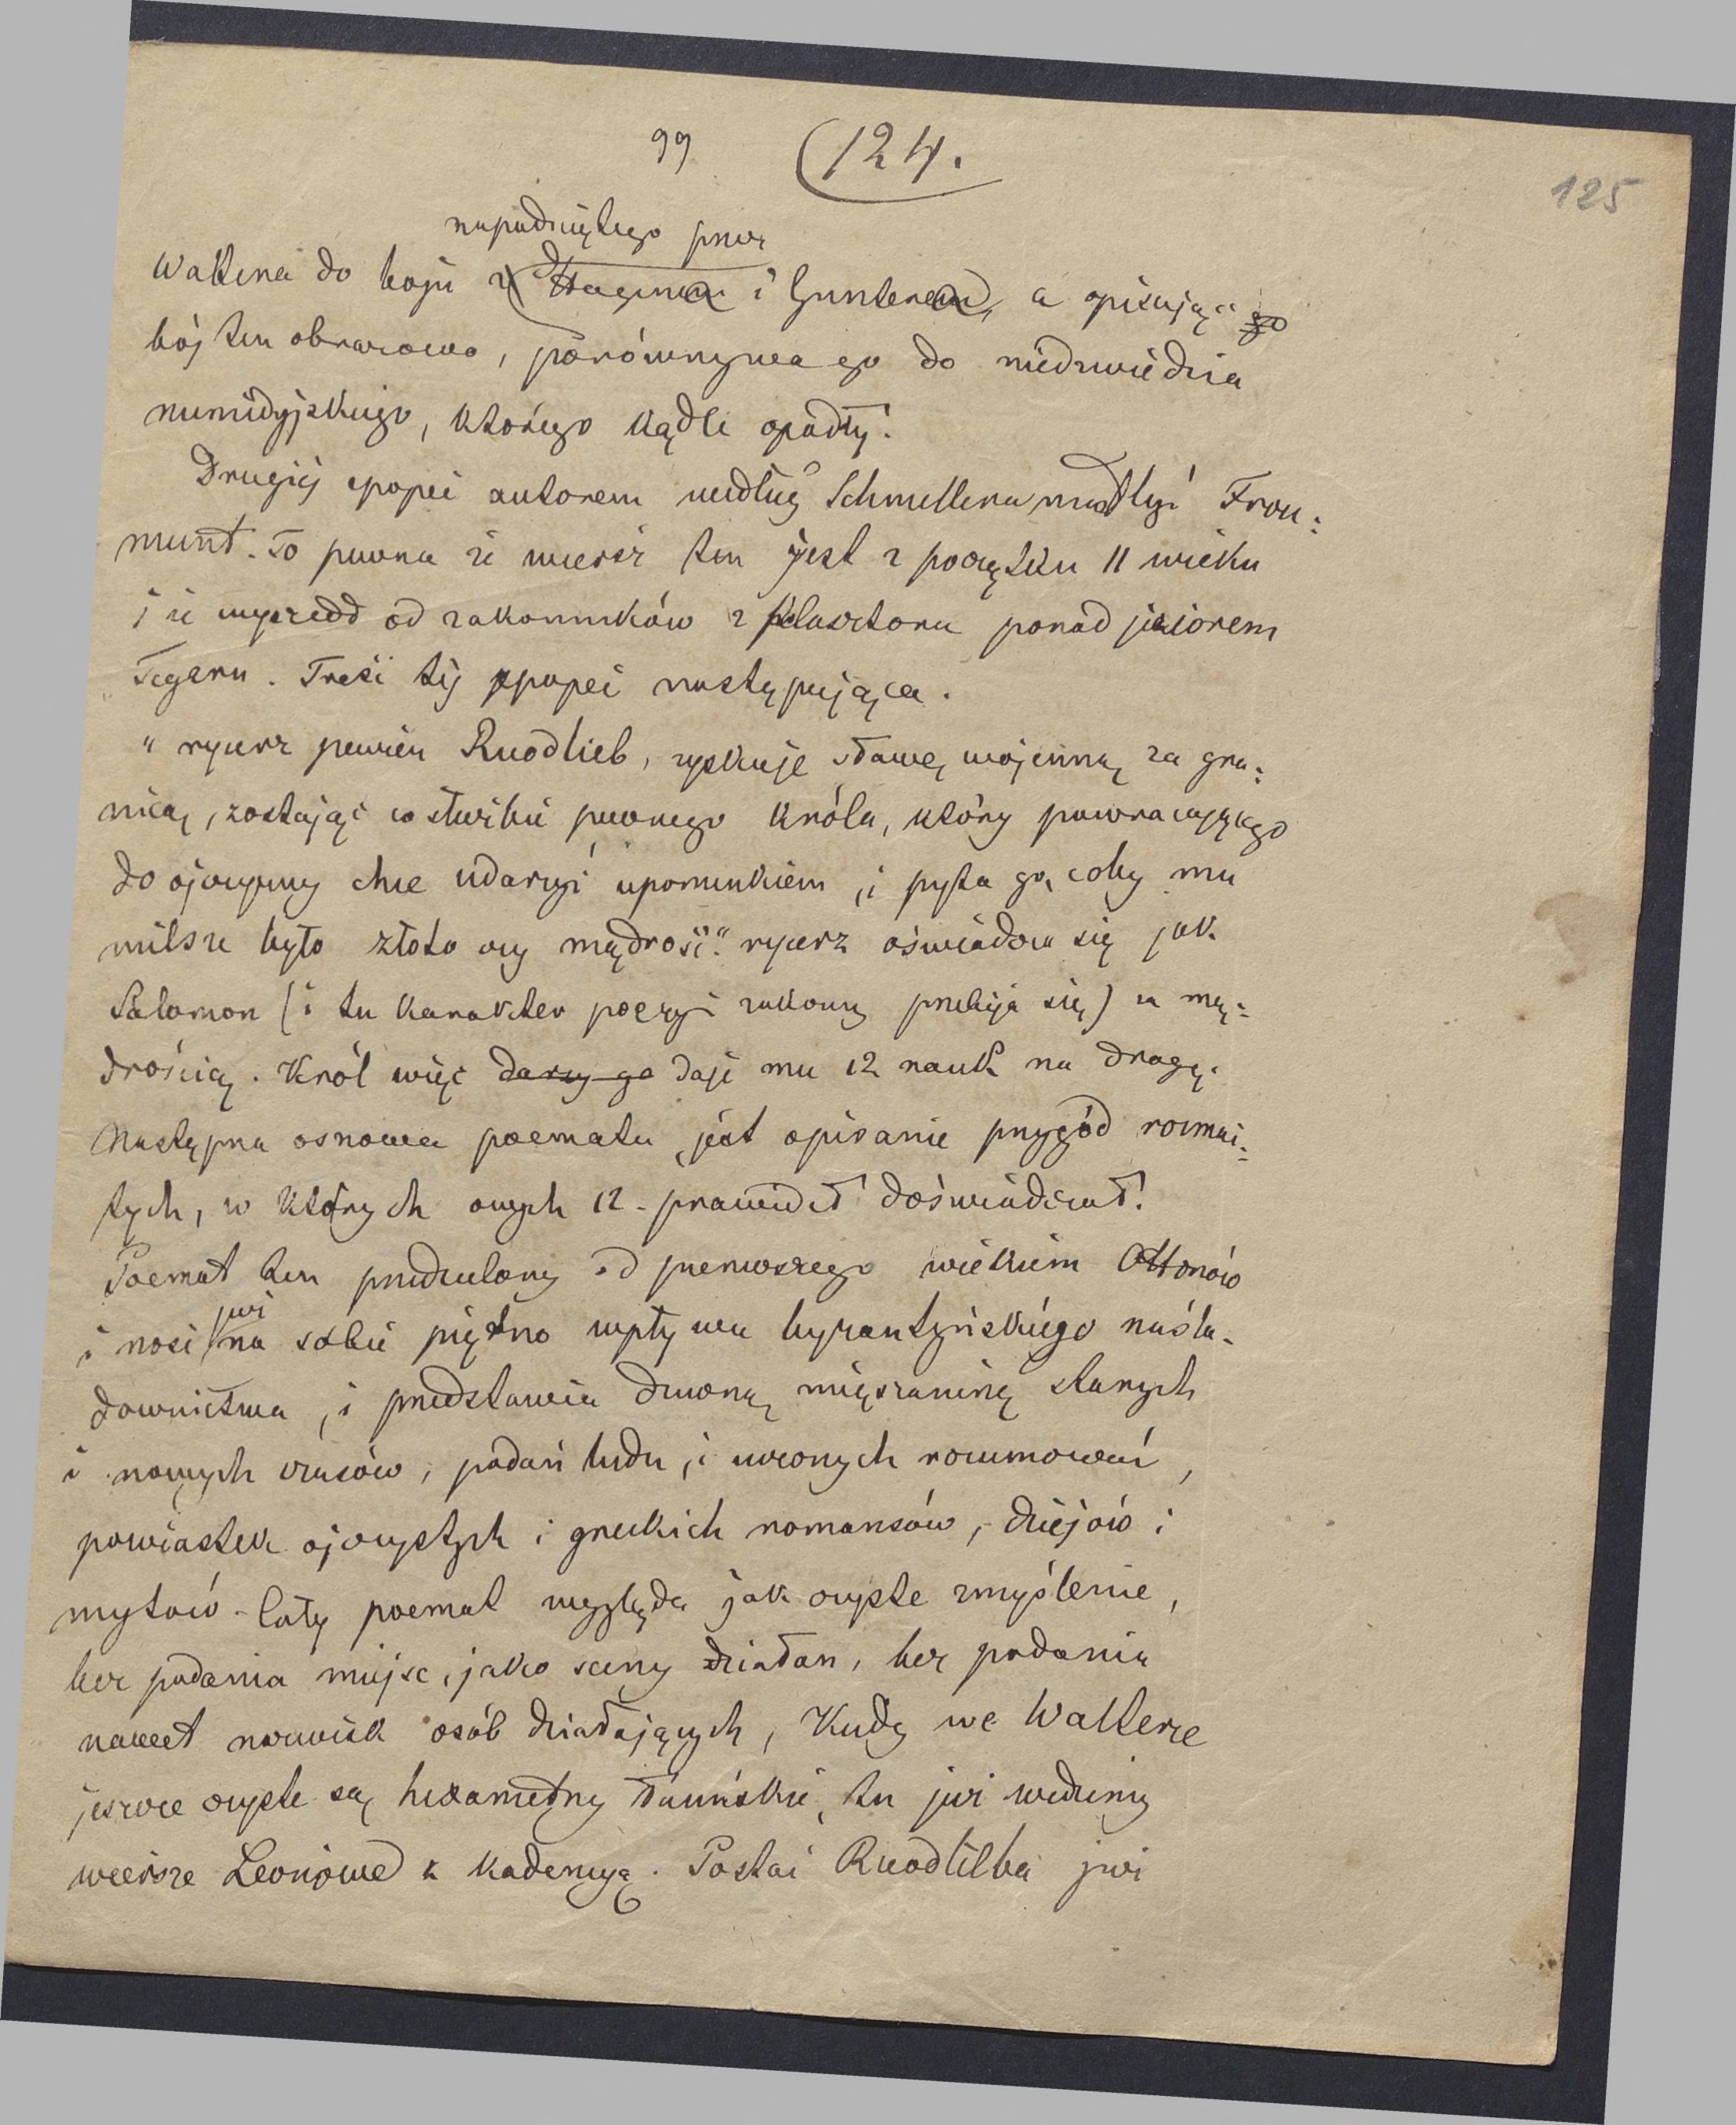 99 (124.
125
napadniętego przez
Waltera do boju z Hagena i Guntera, a opisując go
bój ten obrazowo, porównywa go do niedźwiedzia
numidyjskiego, którego kądle opadły.
Drugiej epopei autorem według Schmellera miał być Frou=
munt. To pewna że wiersz ten jest z początku 11 wieku
i że wyszedł od zakonników z klasztoru ponad jeziorem
Tegern. Treść tej epopei następująca.
"rycerz pewien Ruodlieb, zyskuje sławę wojenną za gra=
nicą, zostając w służbie pewnego króla, który powracającego
do ojczyzny chce udarzyć upominkiem, i pyta go, coby mu
milsze było złoto czy mądrość." rycerz oświadcza się jak
Salomon (i tu karakter poezyi zakonny przebija się) za mą=
drością. Król więc darzy go daje mu 12 nauk na drogę.
Następna osnowa poematu jest opisanie przygód rozmai=
tych, w których owych 12 - prawideł doświadczał.
Poemat ten przedzielony od pierwszego wiekiem Ottonów
już
i nosi na sobie piętno wpływu byzantyńskiego naśla-
downictwa, i przedstawia dziwną mięszaninę starych
i nowych czasów, podań ludu, i uczonych rozumowań,
powiastek ojczystych i greckich romansów, dziejów i
mytów - Cały poemat wygląda jak czyste zmyślenie,
bez podania miejsc, jako sceny działań, bez podania
nawet nazwisk osób działających, Kiedy we Walterze
jeszcze czyste są hexametry łacińskie, tu już widzimy
wiersze Leonjowe z kadencyą. Postać Ruodlieba już